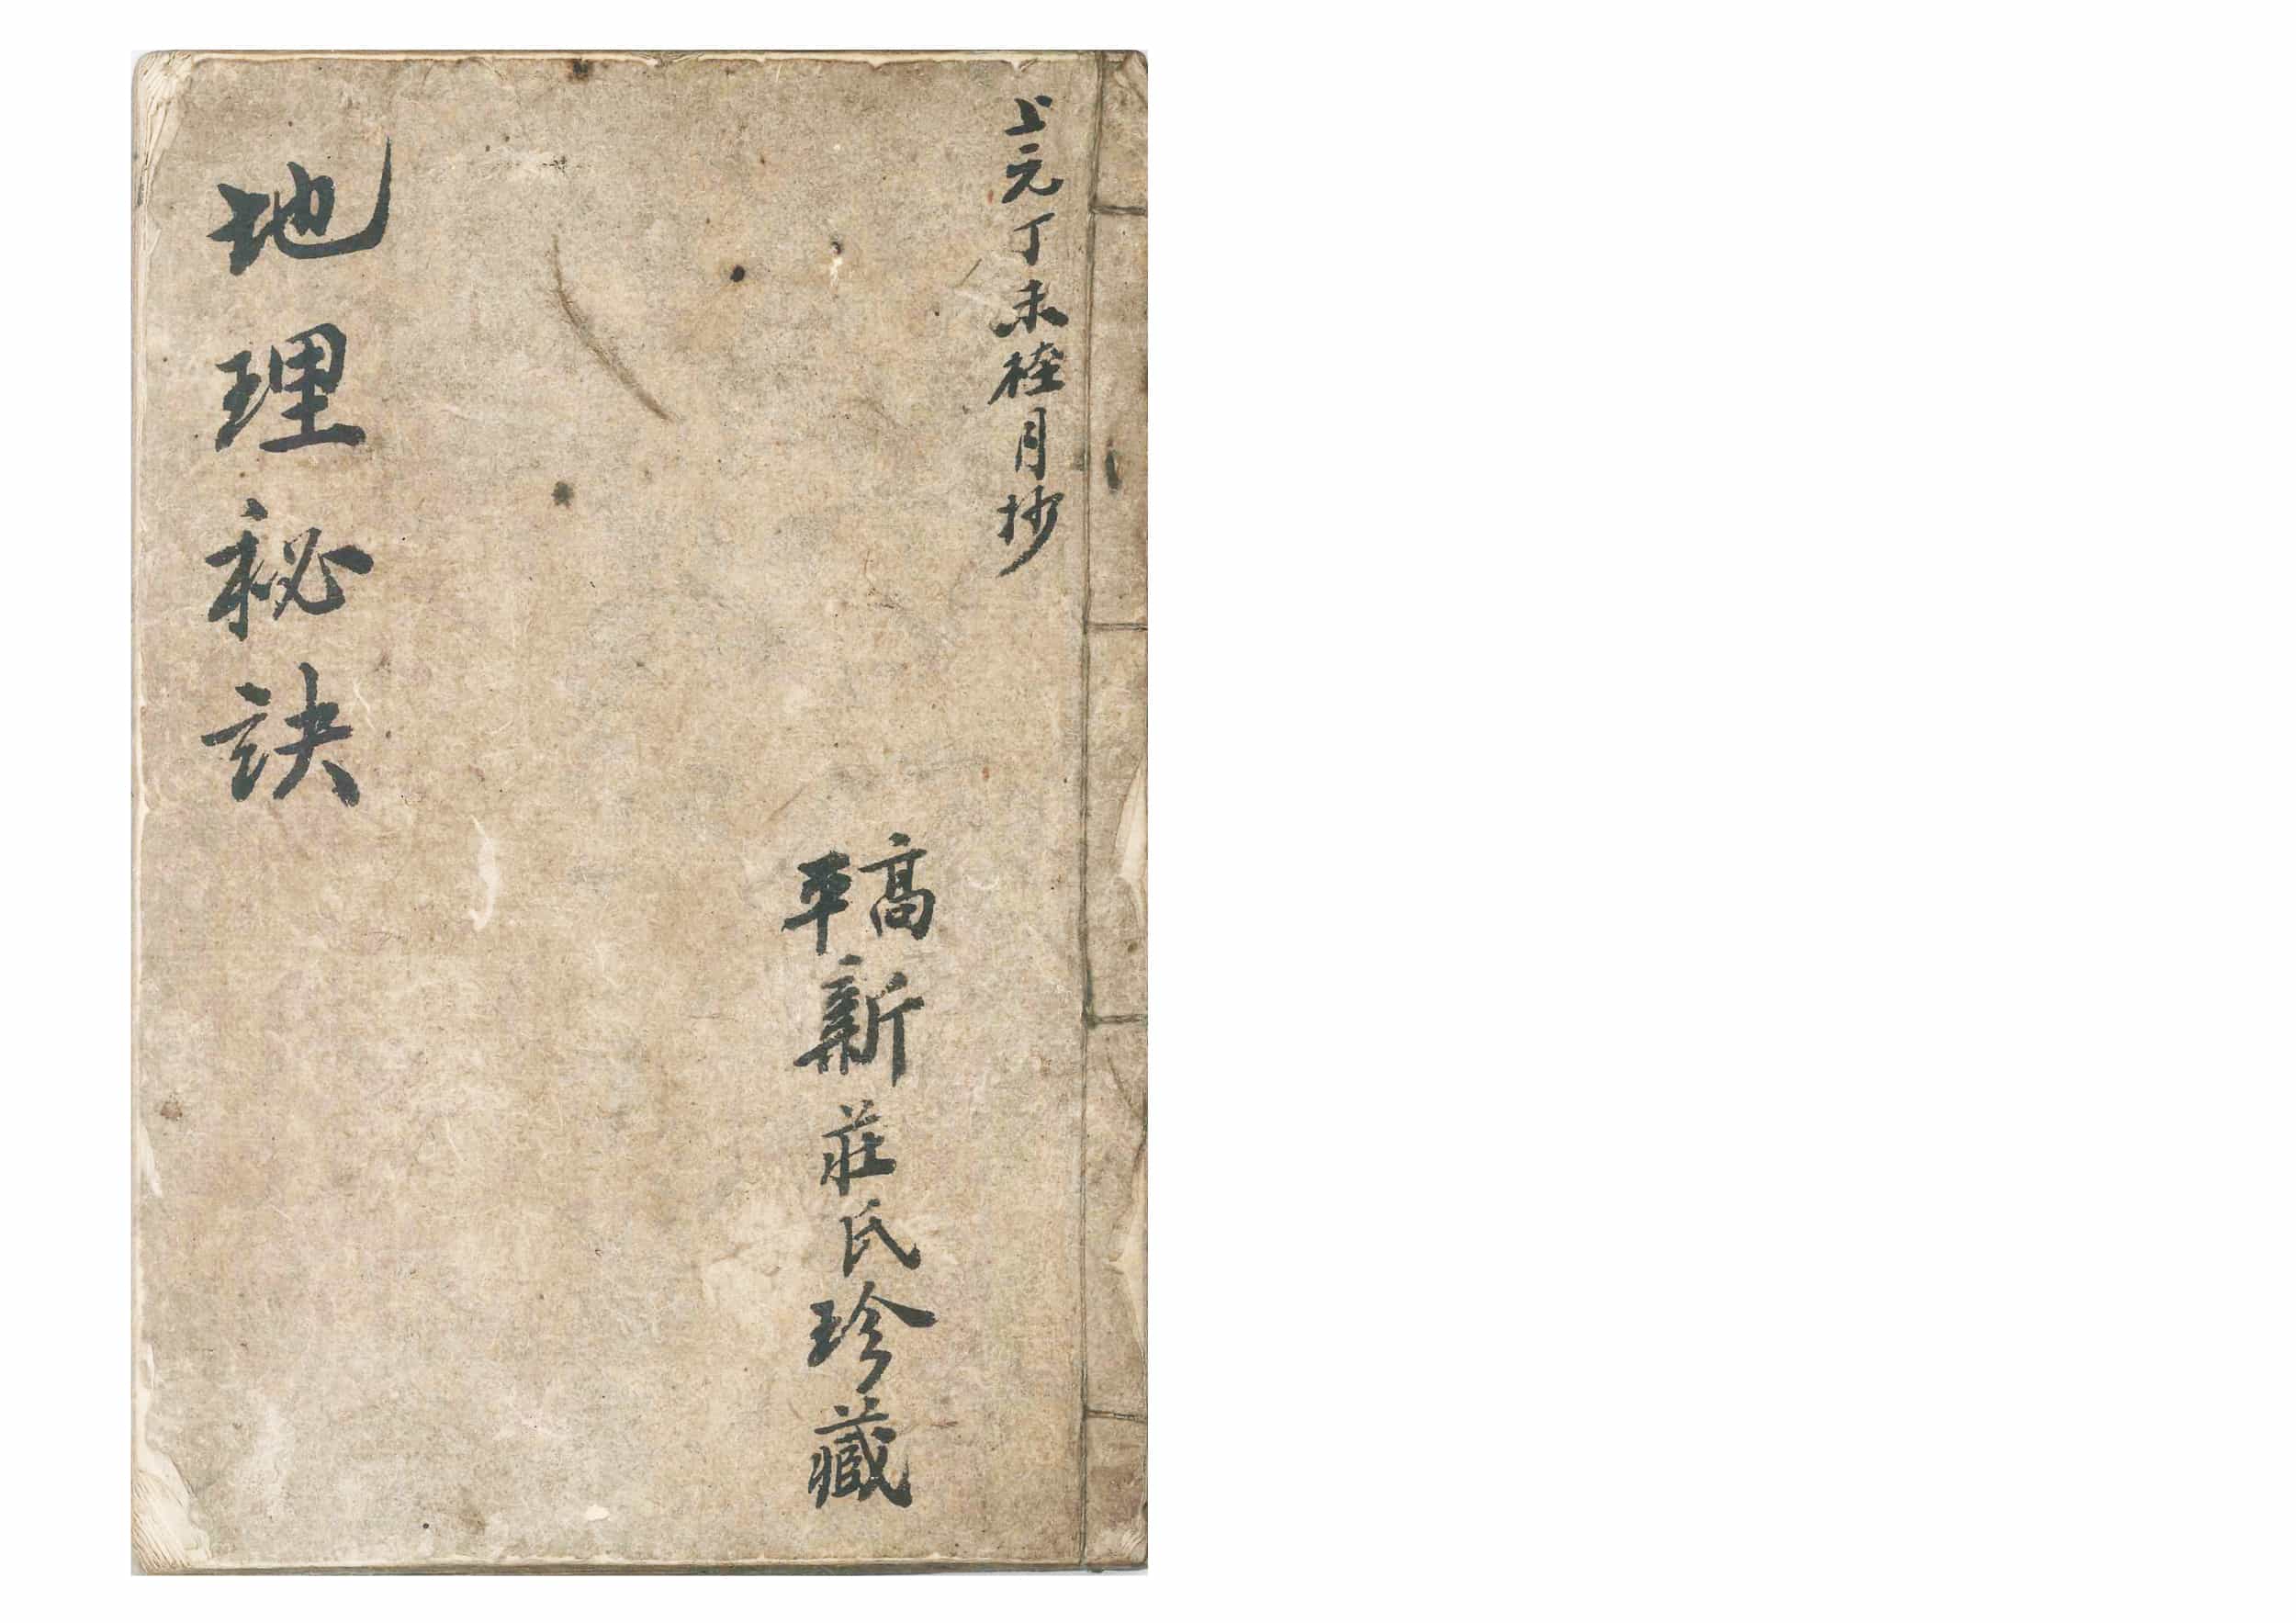 上元丁未月抄
高平新莊氏珍藏
地理秘訣